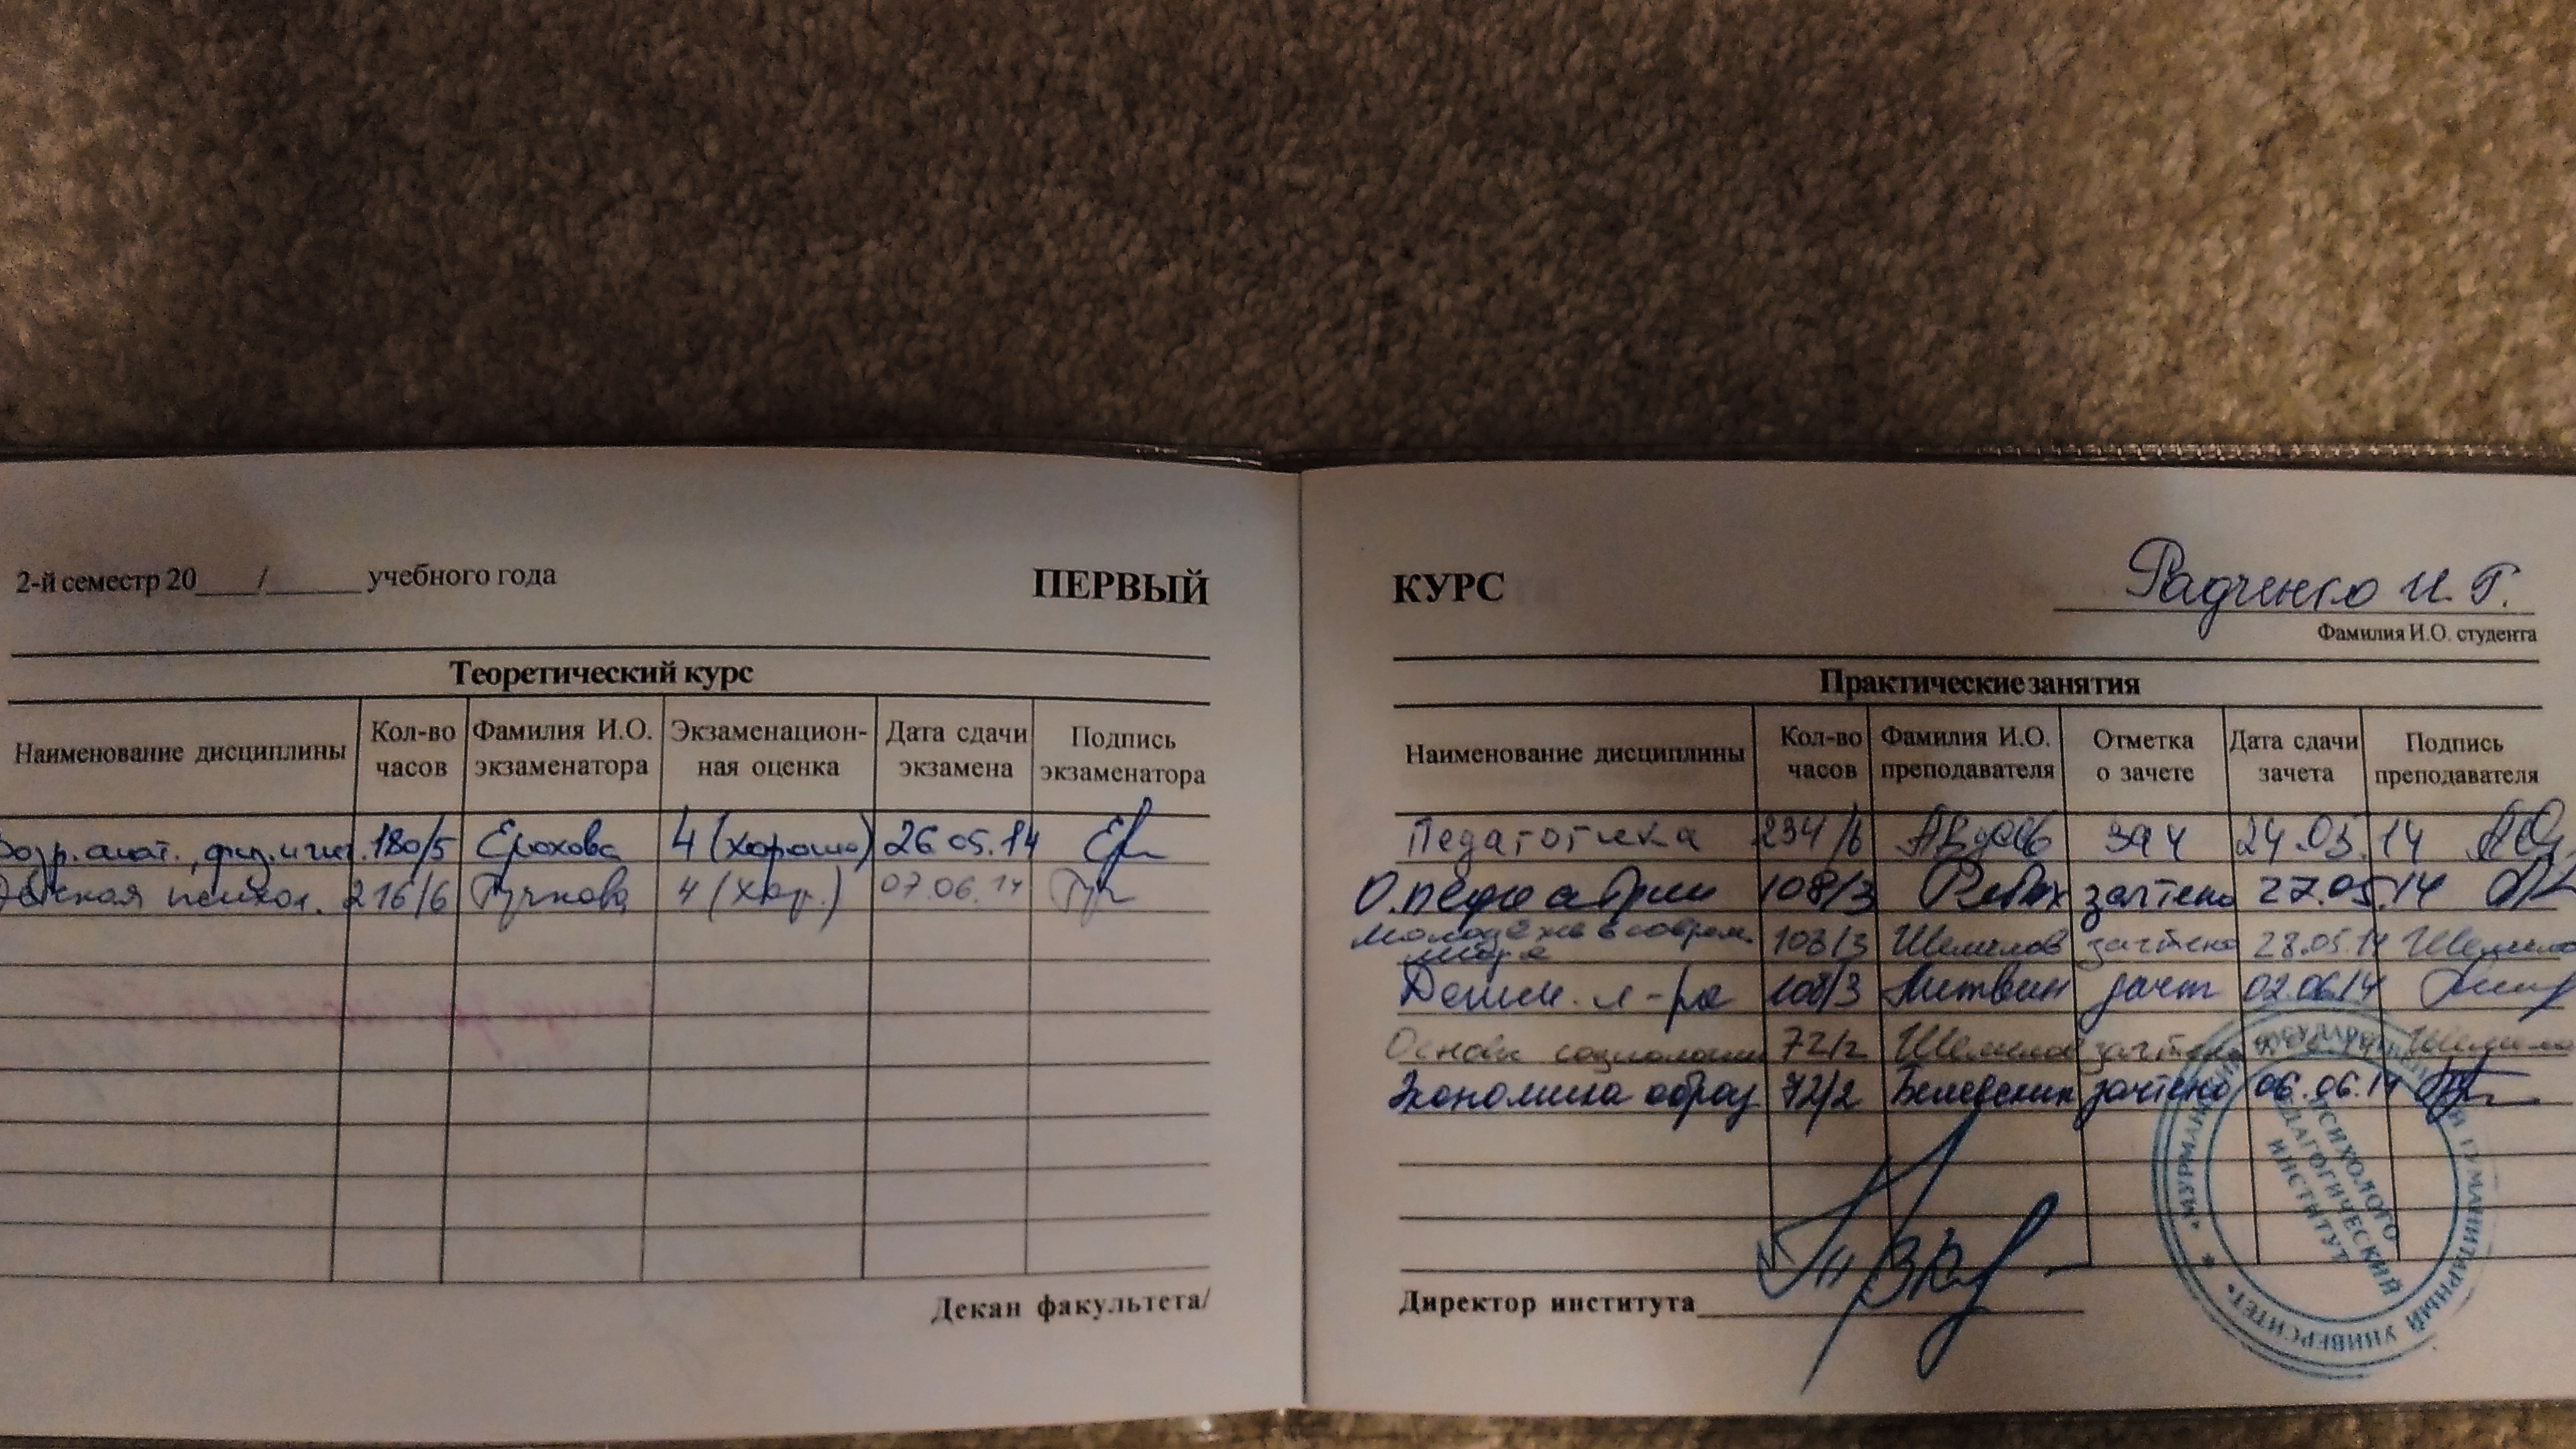 2-й семестр 20____/______ учебного года
ПЕРВЫЙ
Теоретический курс
Наименование дисциплины Кол-во часов Фамилия И.О. экзаменатора Экзаменацион-ная оценка Дата сдачи экзамена Подпись экзаменатора
Возр. анат., физ. и гиг. 180/5 Ерохова 4 (хорошо) 26 05.14
Детская психол. 216/6 4 (хор.) 07.06.14
Декан факультета/
КУРС
Радченко И. Г.
Фамилия И.О. студента
Практические занятия
Наименование дисциплины Кол-во часов Фамилия И.О. преподавателя Отметка о зачете Дата сдачи зачета Подпись преподавателя
Педагогика 234/6 зач 24.05.14
О. педиатрии 108/3 зачтено 27.05.14
Молодёжь в соврем. мире 108/3 Шемелов зачтено 28.05.14
Детск. л-ра 108/3 Литвин зачт 02.06.14
Основы социологии 72/2 зачтено
Экономика образ 72/2 зачтено 06.06.14
Директор института
ПСИХОЛОГО
ПЕДАГОГИЧЕСКИЙ
ИНСТИТУТ
ГУМАНИТАРНЫЙ УНИВЕРСИТЕТ